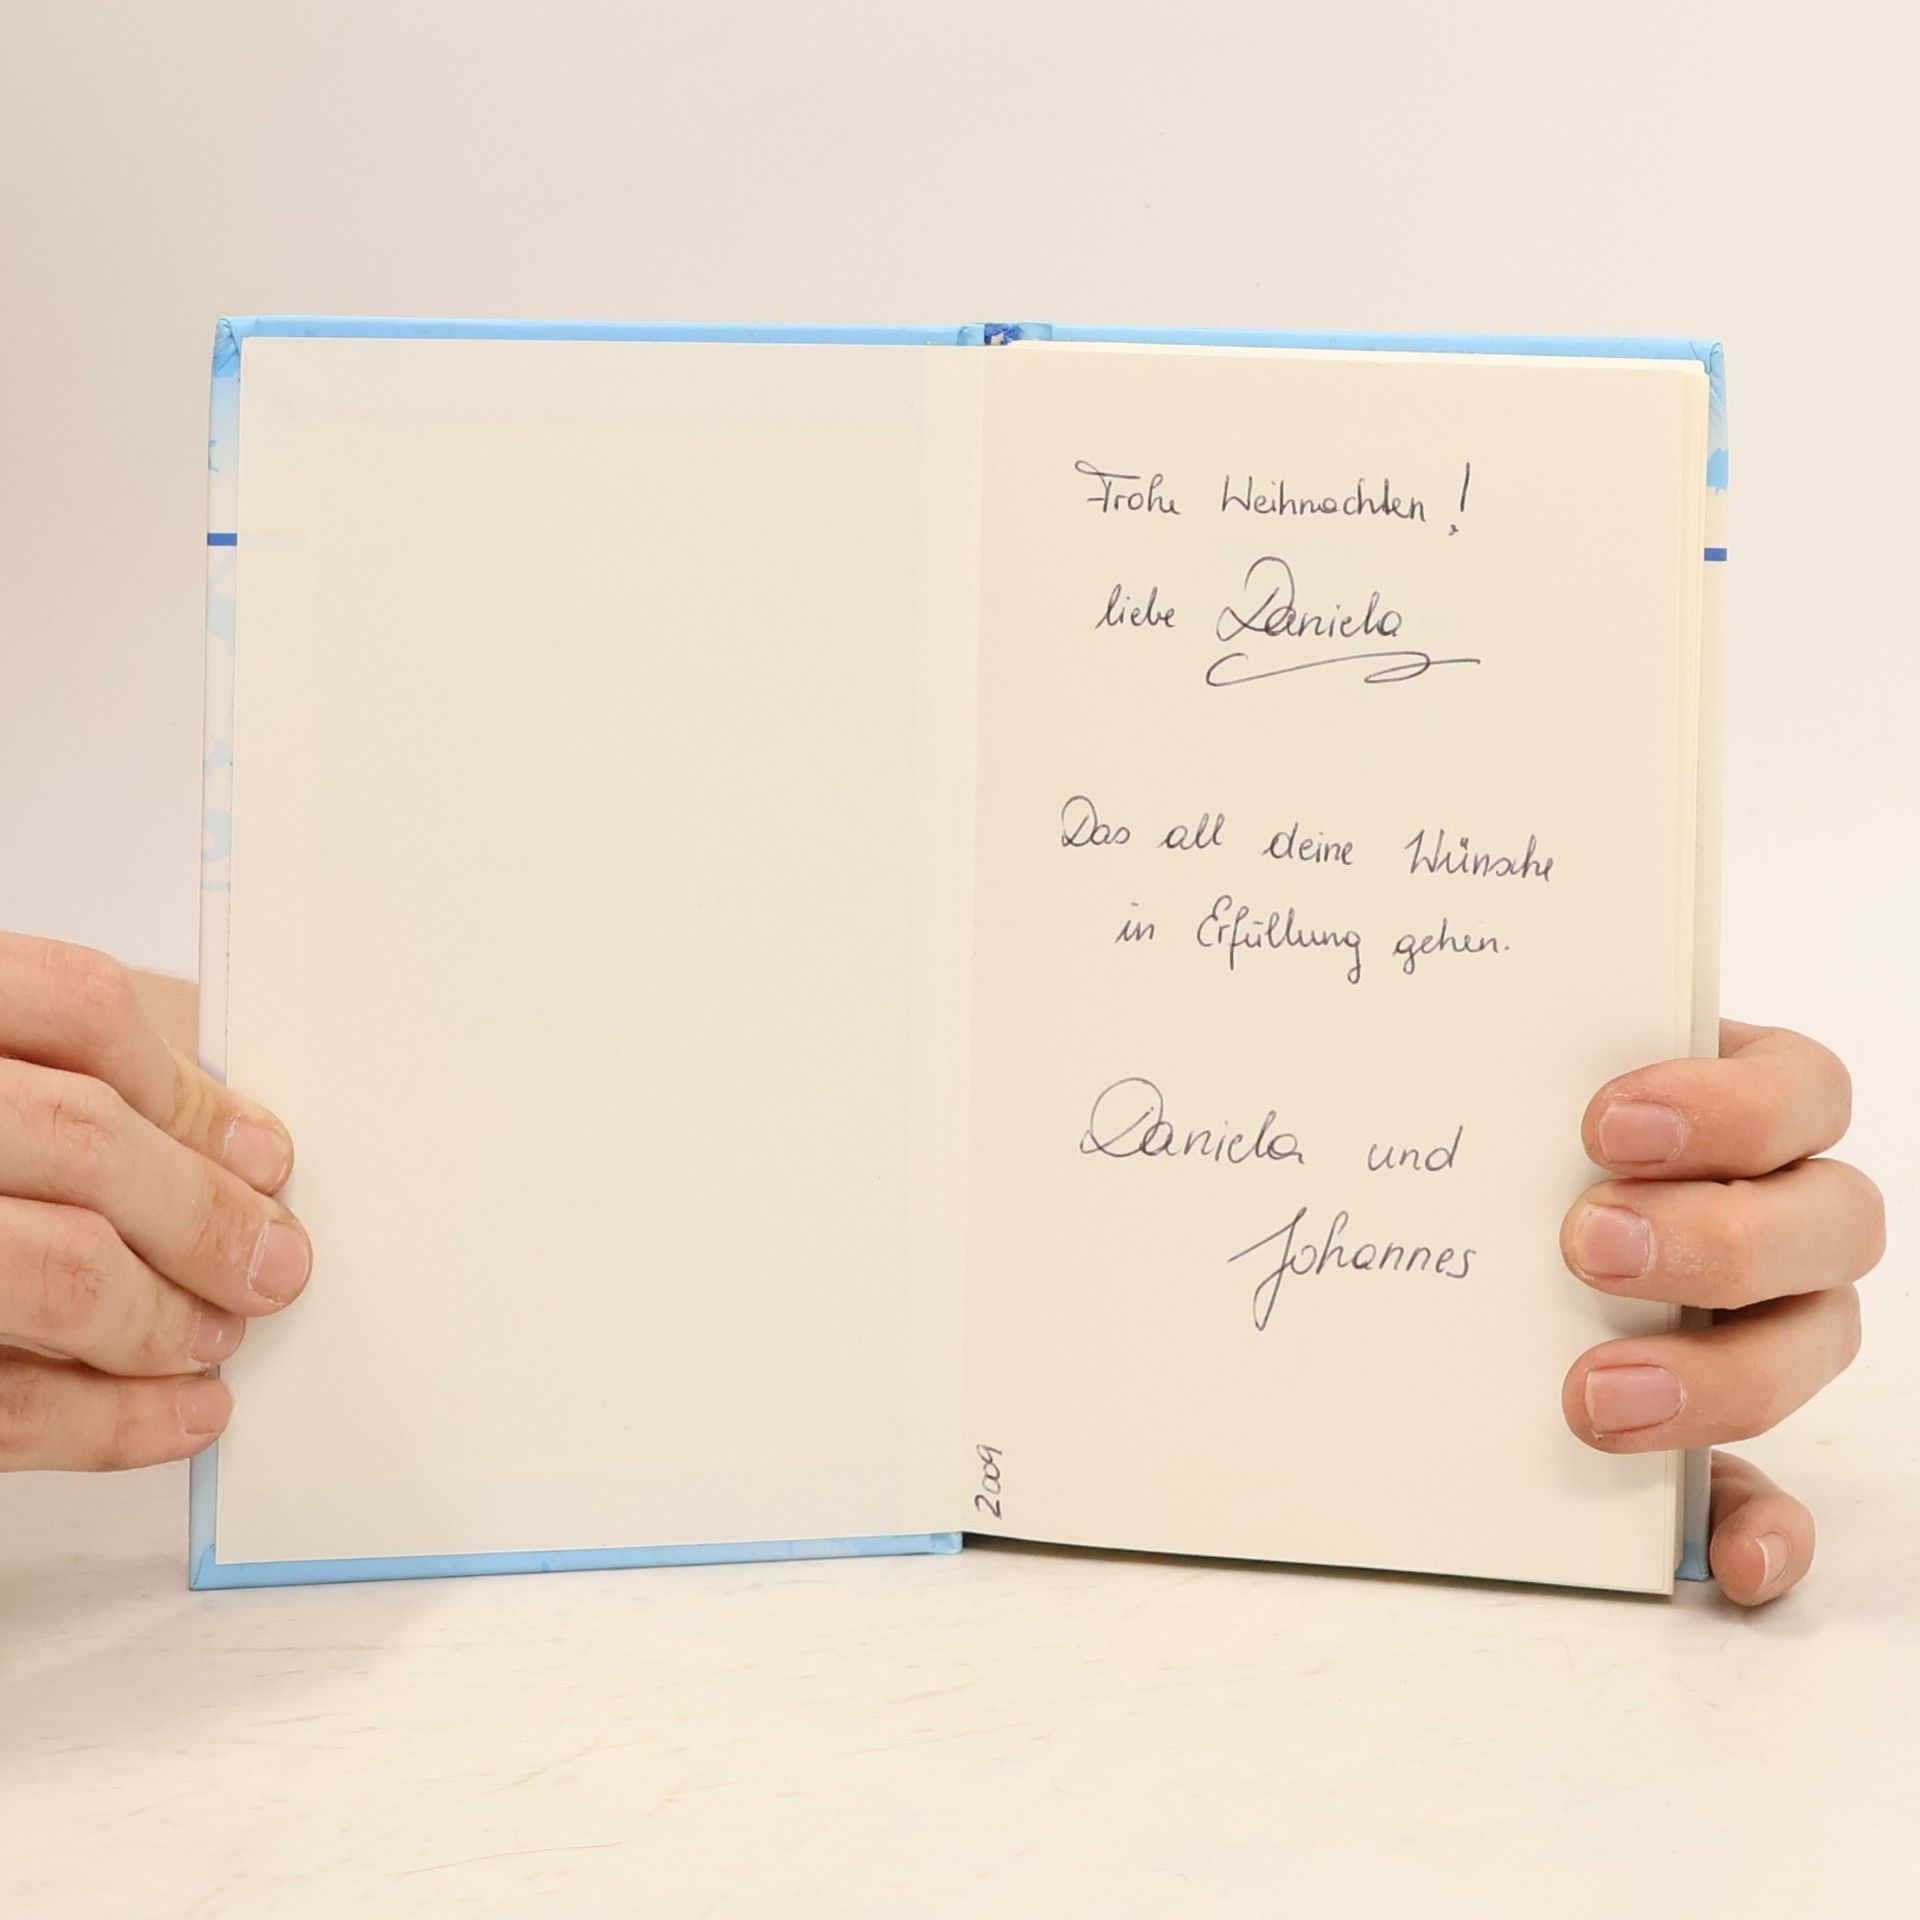 Frohe Weihnachten!
liebe Daniela
Das all deine Wünsche
in Erfüllung gehen.
Daniela und
Johannes
2009